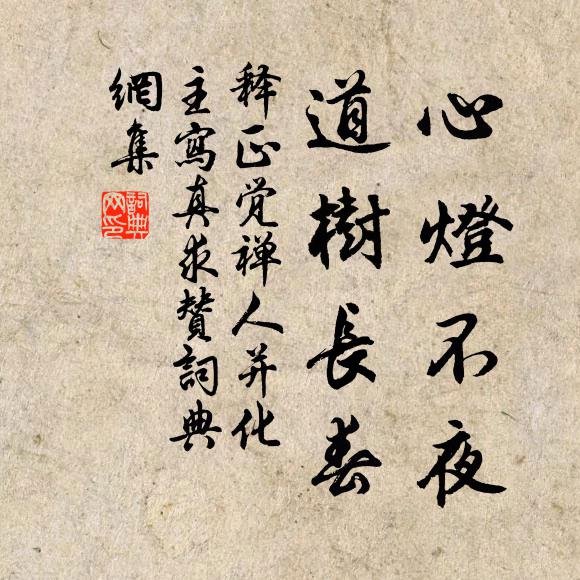 心燈不夜
道樹長春
释正觉禅人并化
主寫真求贊詞典
網集
詞典
网印